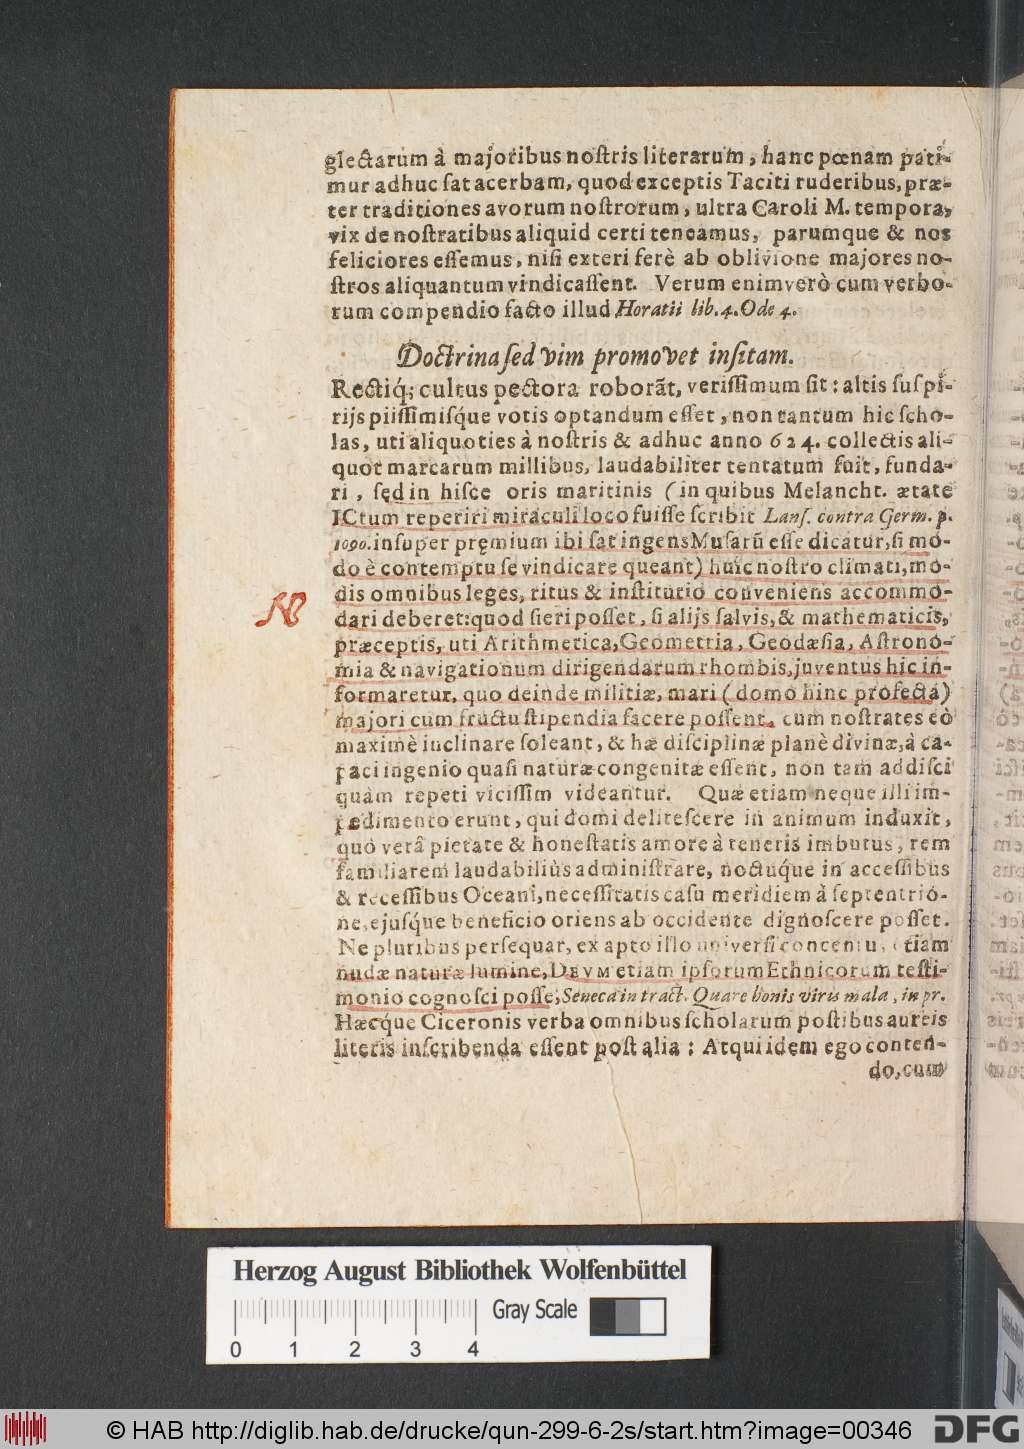 glectarum à majoribus nostris literarum, hanc pœnam pati-
mur adhuc sat acerbam, quod exceptis Taciti ruderibus, præ-
ter traditiones avorum nostrorum, ultra Caroli M. tempora,
vix de nostratibus aliquid certi teneamus, parumque & nos
feliciores essemus, nisi exteri ferè ab oblivione majores no-
stros aliquantum vindicassent. Verum enimverò cum verbo-
rum compendio facto illud Horatii lib. 4. Ode 4.
Doctrina sed vim promovet insitam.
Rectiq́; cultus pectora roborãt, verissimum sit: altis suspi-
rijs piissimisq́ue votis optandum esset, non tantum hic scho-
las, uti aliquoties à nostris & adhuc anno 624. collectis ali-
quot marcarum millibus, laudabiliter tentatum fuit, funda-
ri, sed in hisce oris maritinis (in quibus Melancht. ætate
JCtum reperiri miraculi loco fuisse scribit Lans. contra Germ. p.
1090. insuper pręmium ibi sat ingens Musarũ esse dicatur, si mo-
do è contemptu se vindicare queant) huic nostro climati, mo-
dis omnibus leges, ritus & institutio conveniens accommo-
NB
dari deberet: quod fieri posset, si alijs salvis, & mathematicis,
præceptis, uti Arithmetica, Geometria, Geodæsia, Astrono-
mia & navigationum dirigendarum rhombis, juventus hic in-
formaretur, quo deinde militiæ, mari (domo hinc profectâ)
majori cum fructu stipendia facere possent, cum nostrates eò
maximè inclinare soleant, & hæ disciplinæ planè divinæ, à ca-
paci ingenio quasi naturæ congenitæ essent, non tam addisci
quàm repeti vicissim videantur. Quæ etiam neque illi im-
pedimento erunt, qui domi delitescere in animum induxit,
quò verâ pietate & honestatis amore à teneris imbutus, rem
familiarem laudabiliùs administrare, noctuq́ue in accessibus
& recessibus Oceani, necessitatis casu meridiem à septentrió-
ne, ejusq́ue beneficio oriens ab occidente dignoscere posset.
Ne pluribus persequar, ex apto illo universi concentu, etiam
nudæ naturæ lumine, DEVM etiam ipsorum Ethnicorum testi-
monio cognosci posse, Seneca in tract. Quare bonis viris mala, in pr.
Hæcq́ue Ciceronis verba omnibus scholarum postibus aureis
literis inscribenda essent post alia: Atqui idem ego conten-
do, cum
Herzog August Bibliothek Wolfenbüttel
Gray Scale
0 1 2 3 4
© HAB http://diglib.hab.de/drucke/qun-299-6-2s/start.htm?image=00346
DFG